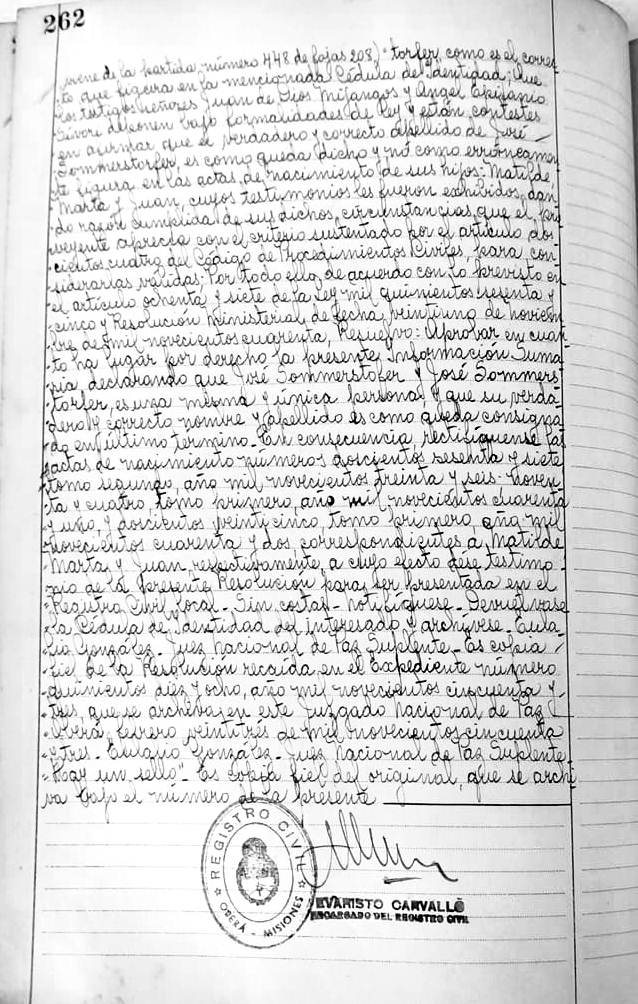 262
viene de la partida número 448 de fojas 208) "torfer, como es el correc-
-to que figura en la mencionada Cédula de Identidad; Que
-los testigos señores Juan de Dios Mifangos y Angel Epifanio
deponen bajo formalidades de Ley y están contestes
en afirmar que el verdadero y correcto apellido de José
Sommerstorfer, es como queda dicho y nó como erróneamen-
-te figura en las actas de nacimiento de sus hijos: Matilde,
-Marta y Juan, cuyos testimonios les fueron exhibidos, dan-
-do razón cumplida de sus dichos, circunstancias que el pro-
-veyente aprecia con el criterio sustentado por el artículo dos-
-cientos cuatro del Código de Procedimientos Civiles, para con-
-siderarlas válidas; Por todo ello, de acuerdo con lo previsto en
-el artículo ochenta y siete de la Ley mil quinientos sesenta y
-cinco y Resolución Ministerial de fecha veintiuno de noviem-
-bre de mil novecientos cuarenta, Resuelvo: Aprobar en cuan-
-to ha lugar por derecho la presente Información Suma-
-ria, declarando que José Sommerstofer y José Sommers-
-torfer, es una misma y única persona y que su verda-
-dero y correcto nombre y apellido es como queda consigna-
-do en último termino.- En consecuencia, rectifíquense las
-actas de nacimiento números doscientos sesenta y siete
-tomo segundo, año mil novecientos treinta y seis - noven-
-ta y cuatro, tomo primero, año mil novecientos cuarenta
-y uno, y doscientos veinticinco, tomo primero año mil
-novecientos cuarenta y dos, correspondientes a Matilde
-Marta y Juan, respectivamente, a cuyo efecto dése testimo-
-nio de la presente Resolución para ser presentada en el
-Registro Civil local.- Sin costas- notifíquese.- Devuélvase
-la Cédula de Identidad del interesado y archívese. Eula-
-lio González.- Juez Nacional de Paz Suplente.- Es copia
-fiel de la Resolución recaída en el Expediente número
-quinientos diez y ocho, año mil novecientos cincuenta y
-tres, que se archiva en este Juzgado Nacional de Paz
febrero veintitrés de mil novecientos cincuenta
-y tres.- Eulalio González.- Juez Nacional de Paz Suplente
-Hay un sello".- Es copia fiel del original, que se archi-
va bajo el número de la presente
REGISTRO CIVIL
OBERÁ - MISIONES
EVARISTO CARVALLO
ENCARGADO DEL REGISTRO CIVIL